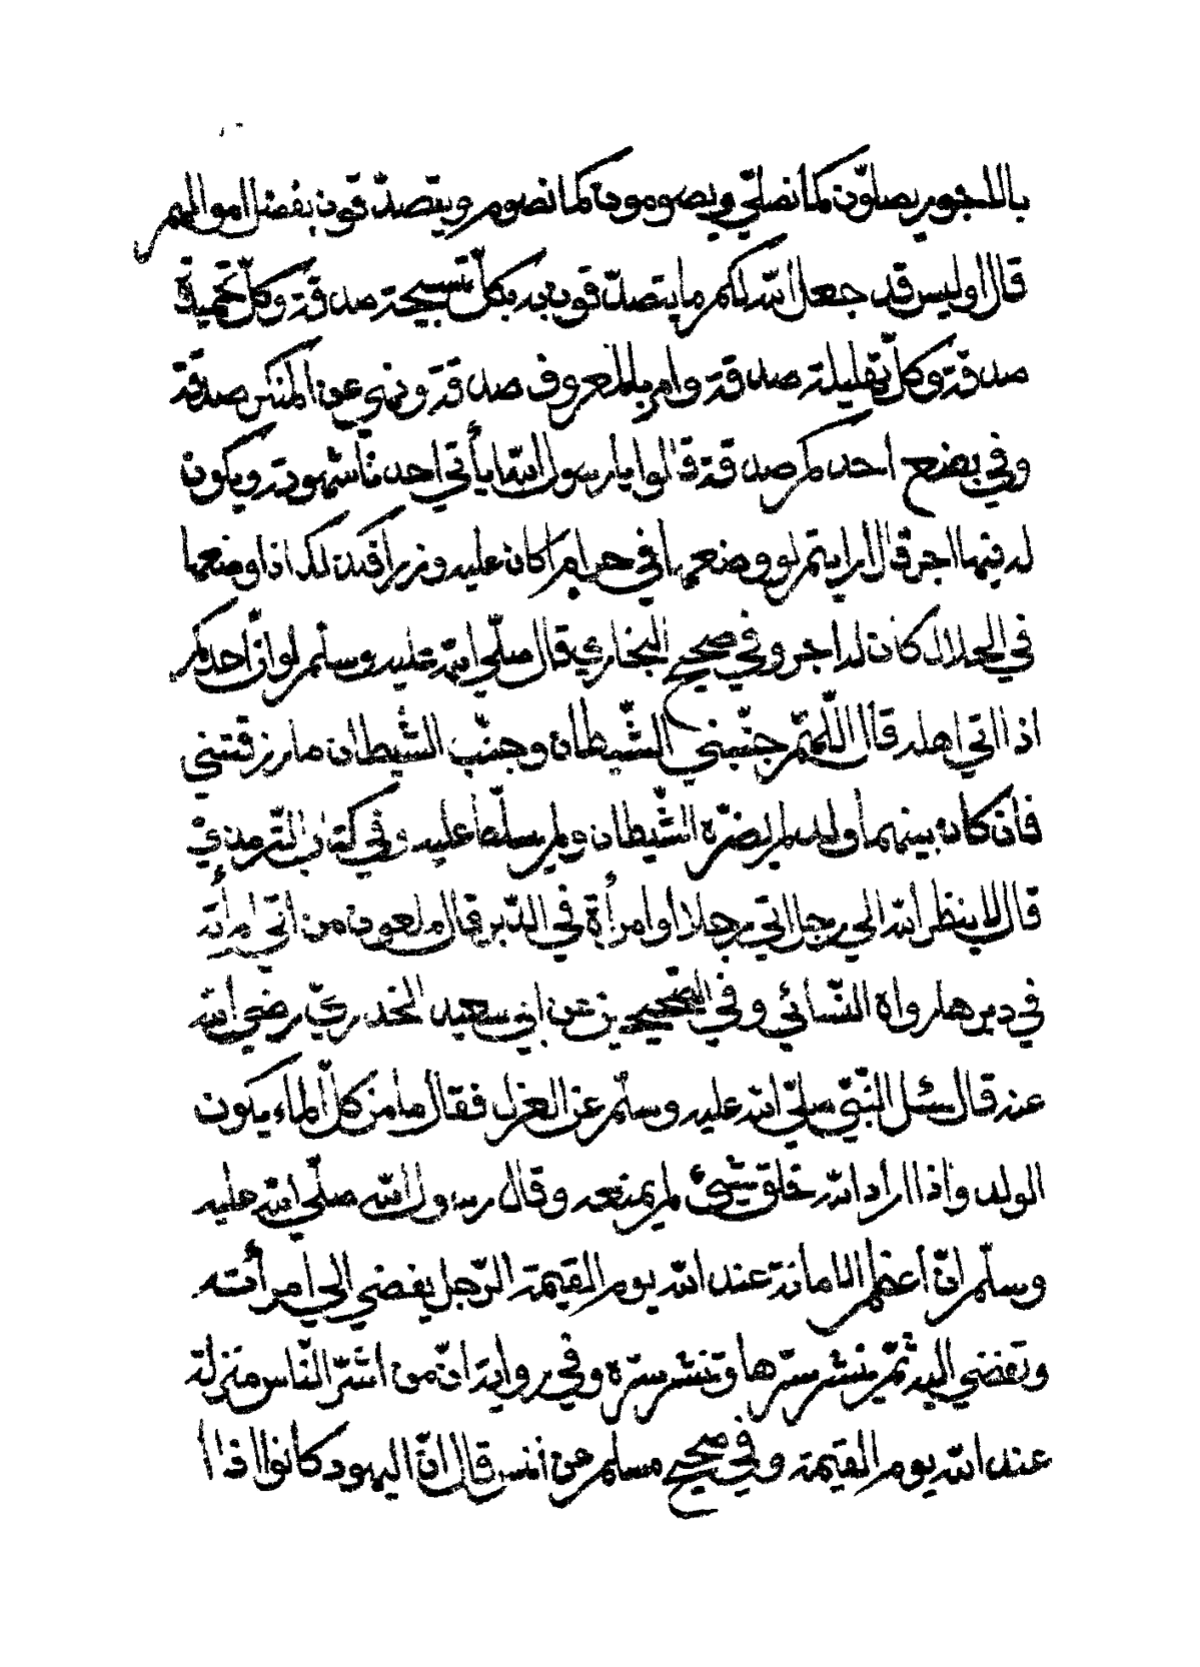 بالاجور يصلّون كما نصلّي ويصومون كما نصوم ويتصدّقون بفضل اموالهم
قال اوليس قد جعل الله لكم ما يتصدّقون به بكلّ تسبيحة صدقة وكلّ تحميدة
صدقة وكلّ تهليلة صدقة وامر بالمعروف صدقة ونهي عن المنكر صدقة
وفي بضع احدكم صدقة قالوا يا رسول الله ايأتي احدنا شهوته ويكون
له فيها اجر قال ارايتم لو وضعها في حرام اكان عليه وزر افكذلك اذا وضعها
في الحلال كان له اجر وفي صحيح البخاري قال صلّي الله عليه وسلم لو انّ احدكم
اذا اتي اهله قال اللّهمّ جنّبني الشّيطان وجنّب الشّيطان ما رزقتني
فان كان بينهما ولد لم يضرّه الشّيطان ولم يسلّط عليه وفي كتاب التّرمذيّ
قال لا ينظر الله الي رجل اتي رجلا او امرأة في الدّبر قال ملعون من اتي امرأته
في دبرها رواه النّسائي وفي الصّحيحين عن ابي سعيد الخدريّ رضي الله
عنه قال سئل النّبيّ صلّي الله عليه وسلّم عن العزل فقال ما من كلّ الماء يكون
الولد واذا اراد الله خلق شيئ لم يمنعه وقال رسول الله صلّي الله عليه
وسلّم انّ أعظم الامانة عند الله يوم القيمة الرّجل يفضي الي امرأته
وتفضي اليه ثمّ ينشر سرّها وتنشر سرّه وفي رواية انّ من اشرّ النّاس منزلة
عند الله يوم القيمة وفي صحيح مسلم عن أنس قال انّ اليهود كانوا اذا